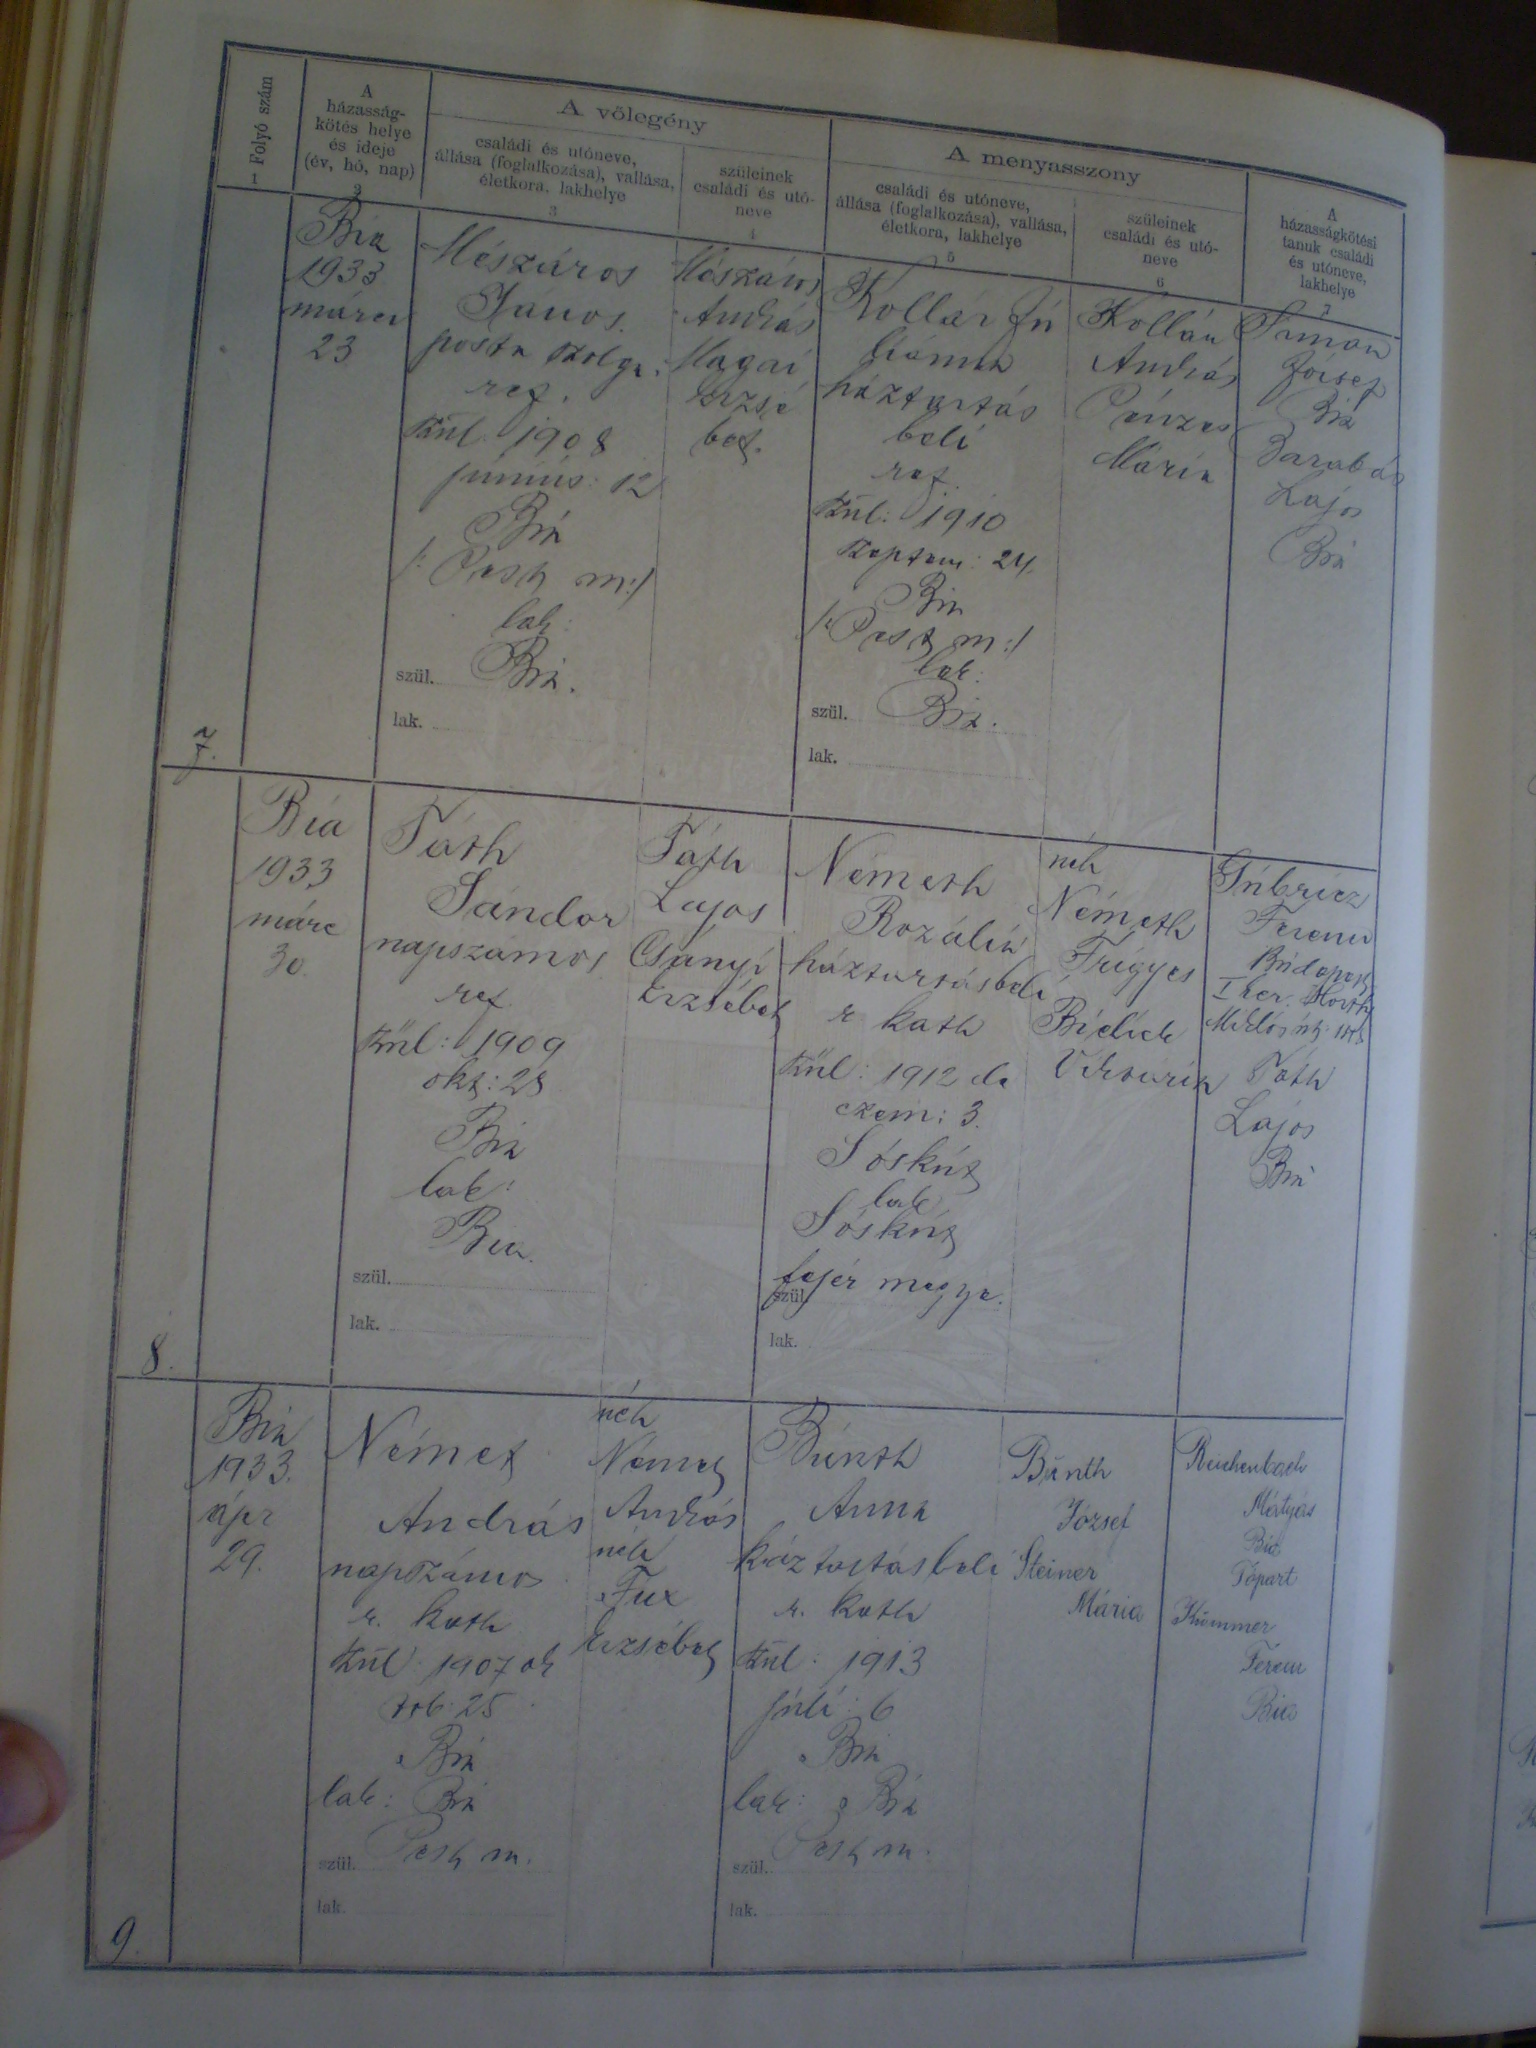 Folyó szám
1
A
házasság-
kötés helye
és ideje
(év, hó, nap)
2
A vőlegény
családi és utóneve,
állása (foglalkozása), vallása,
életkora, lakhelye
3
szüleinek
családi és utó-
neve
4
A menyasszony
családi és utóneve,
állása (foglalkozása), vallása,
életkora, lakhelye
5
szüleinek
családi és utó-
neve
6
A
házasságkötési
tanuk családi
és utóneve,
lakhelye
7
7.
Bia
1933
márci
23
Mészáros
János.
posta szolga
ref.
szül. 1908
június: 12
Bia
/: Pest m:/
lak:
szül. Bia.
lak.
Mészáros
András
Magai
Erzsé
bet.
Kollár Ju
liánna
háztartás
beli
ref.
szül: 1910
szeptem: 24.
Bia
/: Pest m:/
lak:
szül. Bia.
lak.
Kollár
András
Pénzes
Mária
Simon
József
Bia
Barabás
Lajos
Bia
8.
Bia
1933
márc
30.
Tóth
Sándor
napszámos
ref
szül: 1909
okt: 28
Bia
lak:
Bia.
szül.
lak.
Tóth
Lajos
Csányi
Erzsébet
Németh
Rozália
háztartásbeli
r kath
szül: 1912 de
czem: 3.
Sóskút
lak
Sóskút
fejér megye.
szül.
lak.
néh
Németh
Frigyes
Viktória
Ferenc
Budapest
I ker. Horthy
Miklós út
Tóth
Lajos
Bia
9.
Bia
1933.
ápr
29.
Német
András
napszámos
r. kath
szül: 1907 ok
tob: 25
Bia
lak: Bia
szül. Pest m.
lak.
néh
Német
András
néh
Fux
Erzsébet
Bünth
Anna
háztartásbeli
r. kath
szül: 1913
júli: 6
Bia
lak: Bia
szül. Pest m.
lak.
Bünth
József
Steiner
Mária
Reichenbach
Mátyás
Bia
Tópart
Kümmer
Ferenc
Bia